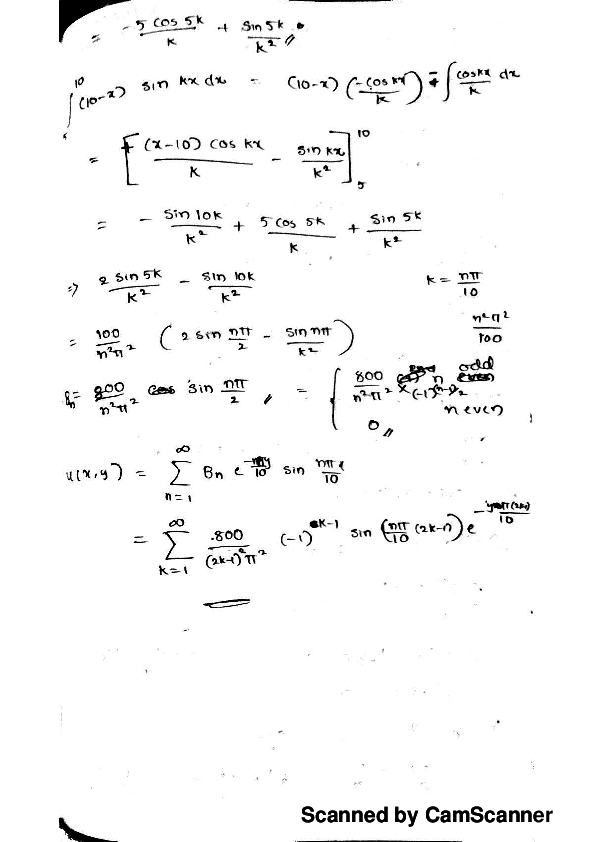 = -5 cos 5k / k + sin 5k / k² //
∫₅¹⁰ (10-x) sin kx dx = (10-x) (-cos kx / k) - ∫ cos kx / k dx
= [ (x-10) cos kx / k - sin kx / k² ]₅¹⁰
= - sin 10k / k² + 5 cos 5k / k + sin 5k / k²
⇒ 2 sin 5k / k² - sin 10k / k² k = nπ / 10
= 100 / n²π² ( 2 sin nπ / 2 - sin nπ / k² ) n²π² / 100
Bn = 800 / n²π² sin nπ / 2 ,, = { 800 / n²π² × (-1)^(n-1)/2 n odd
0 ,, n even
u(x,y) = ∑ n=1 ∞ Bn e^(-nπy/10) sin nπx / 10
= ∑ k=1 ∞ 800 / (2k-1)²π² (-1)^(k-1) sin ( nπ / 10 (2k-1) ) e
Scanned by CamScanner